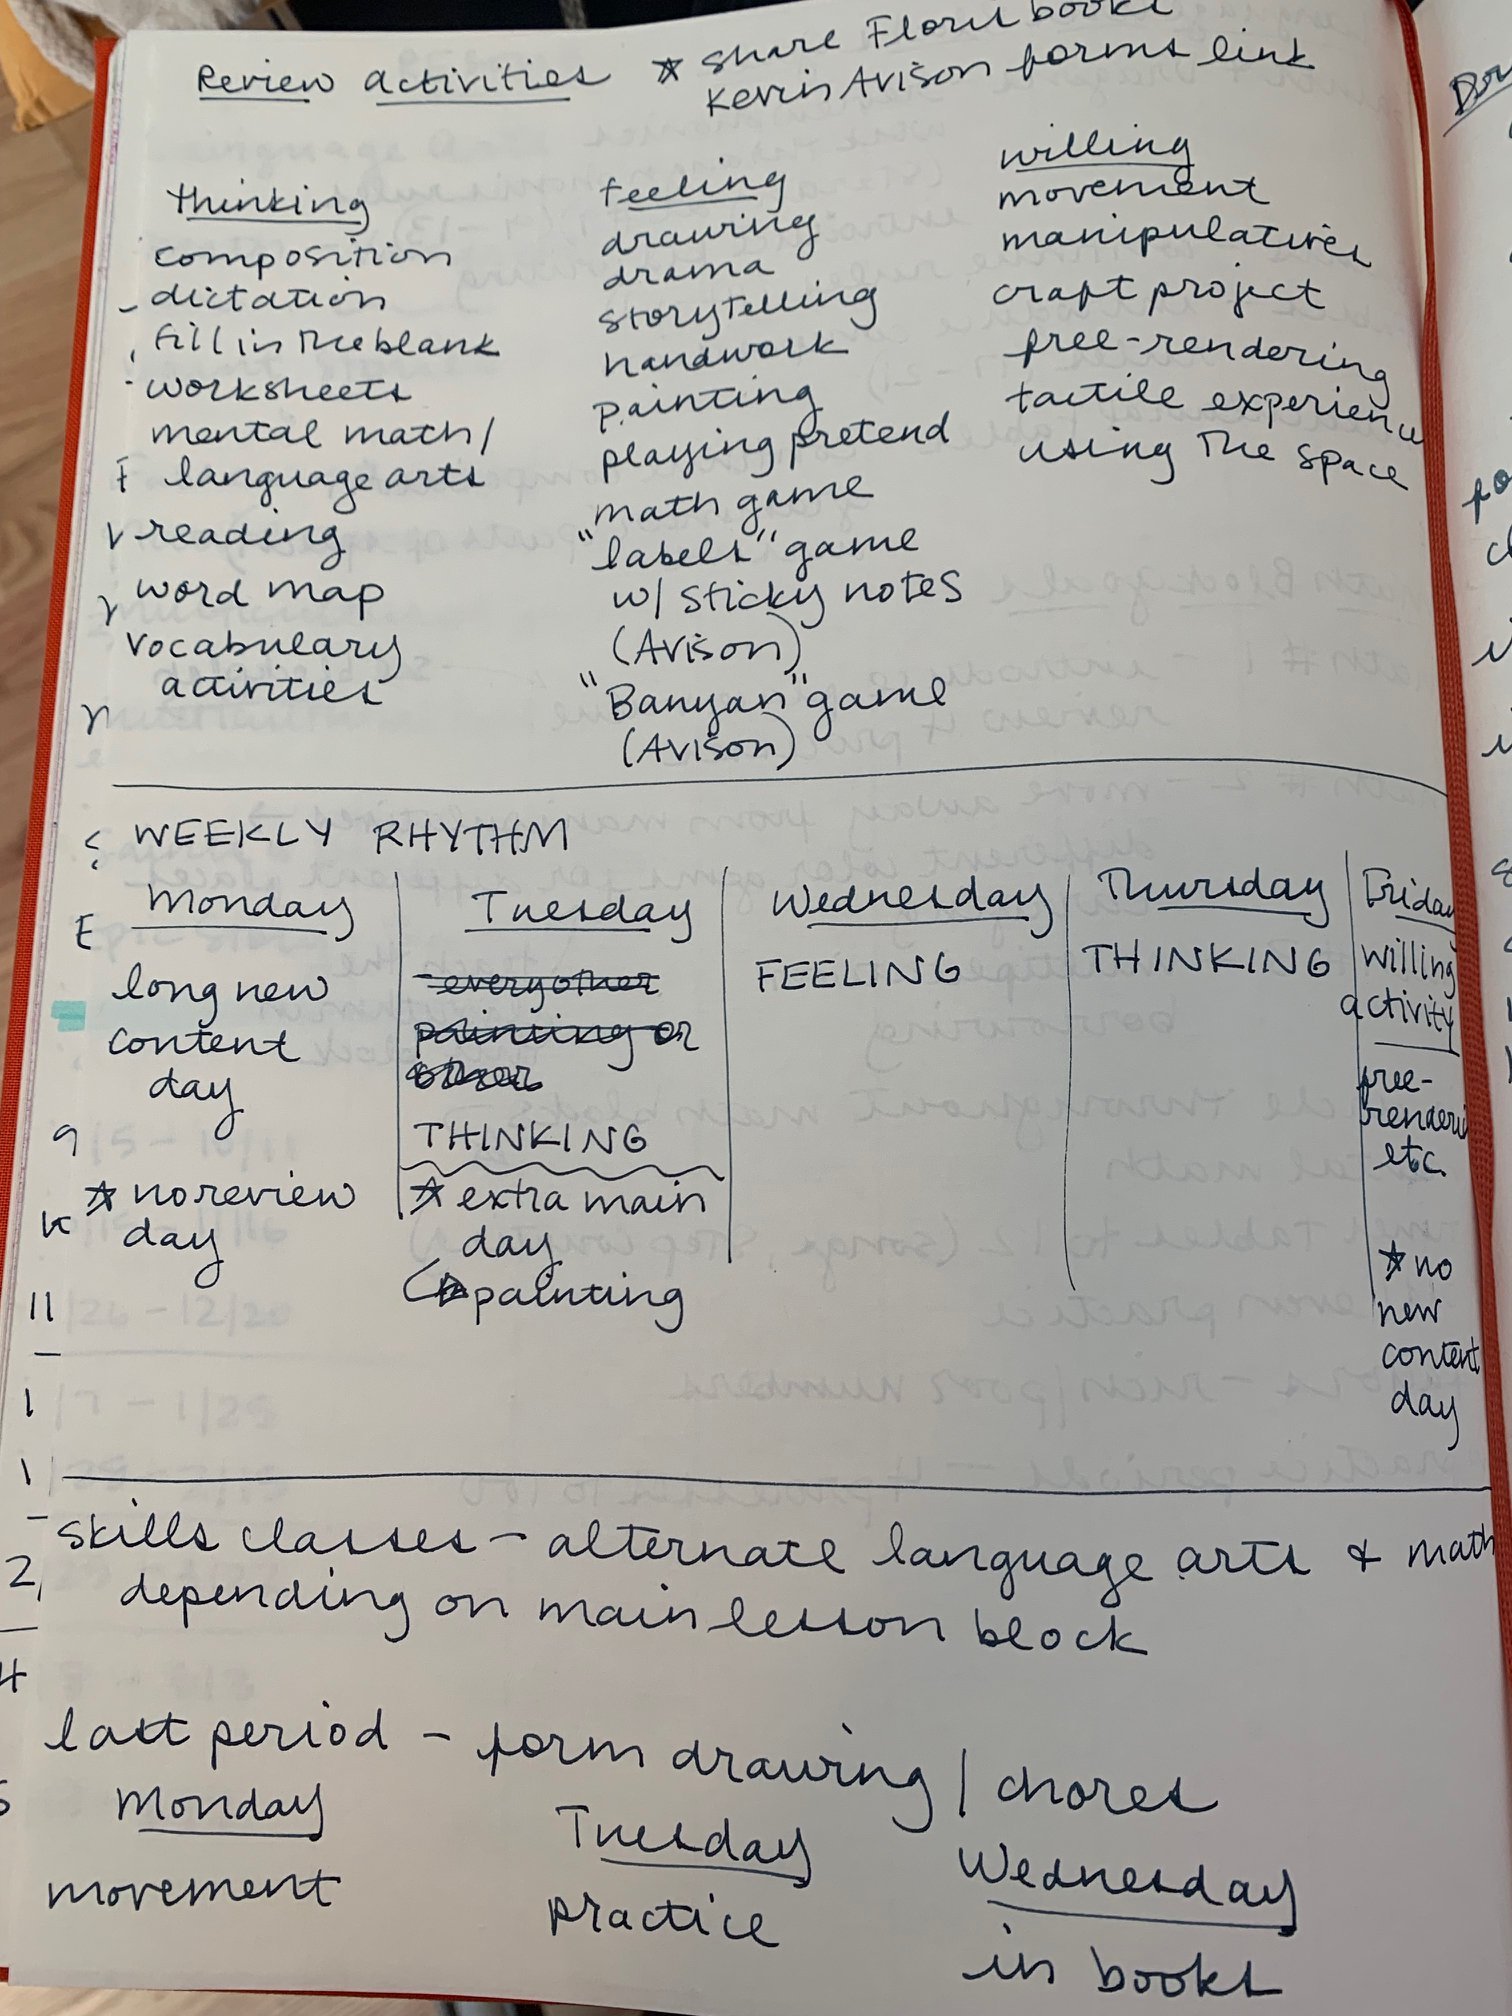 Review activities ☆ share Floris books
Kevin Avison forms link
thinking
composition
dictation
fill in the blank
worksheets
mental math/
language arts
reading
word map
vocabulary
activities
feeling
drawing
drama
storytelling
handwork
painting
playing pretend
math game
"labels" game
w/ sticky notes
(Avison)
"Banyan" game
(Avison)
willing
movement
manipulatives
craft project
free-rendering
tactile experience
using the space
WEEKLY RHYTHM
Monday
long new
content
day
☆ no review
day
Tuesday
every other
painting or
other
THINKING
☆ extra main
day
↳ painting
Wednesday
FEELING
Thursday
THINKING
Friday
willing
activity
free-
renderi
etc.
☆ no
new
content
day
skills classes - alternate language arts & math
depending on main lesson block
last period - form drawing / chores
Monday
movement
Tuesday
practice
Wednesday
in books